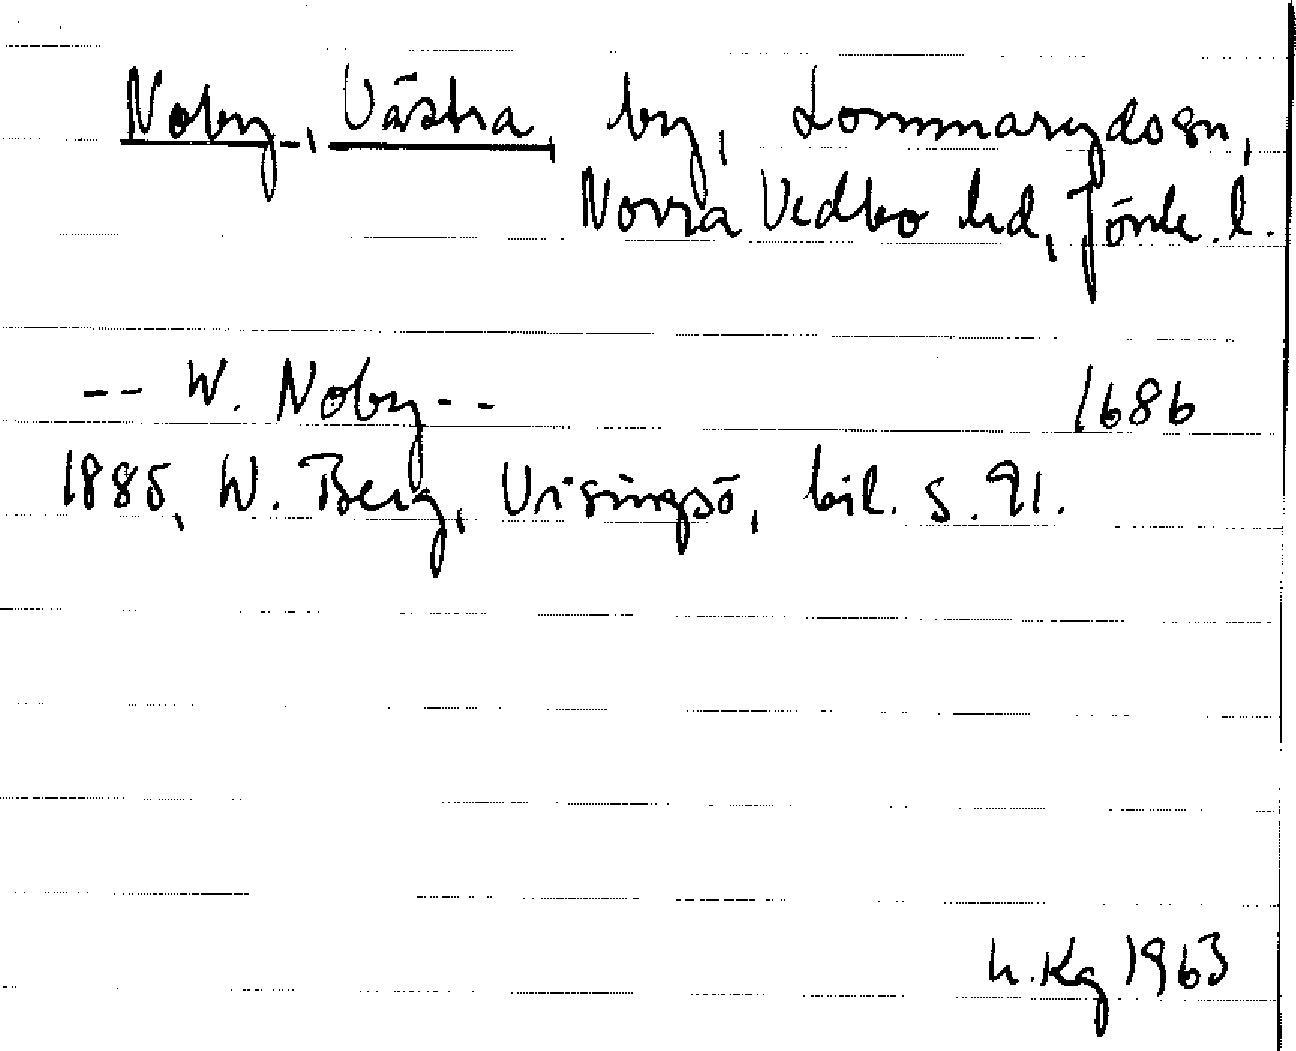 Noby, Västra, by, Lommarydssn,
Norra Vedbo hd, Jönk. l.
-- W. Noby -- 1686
1885, W. Berg, Visingsö, bil. s. 91.
h. Kg 1963